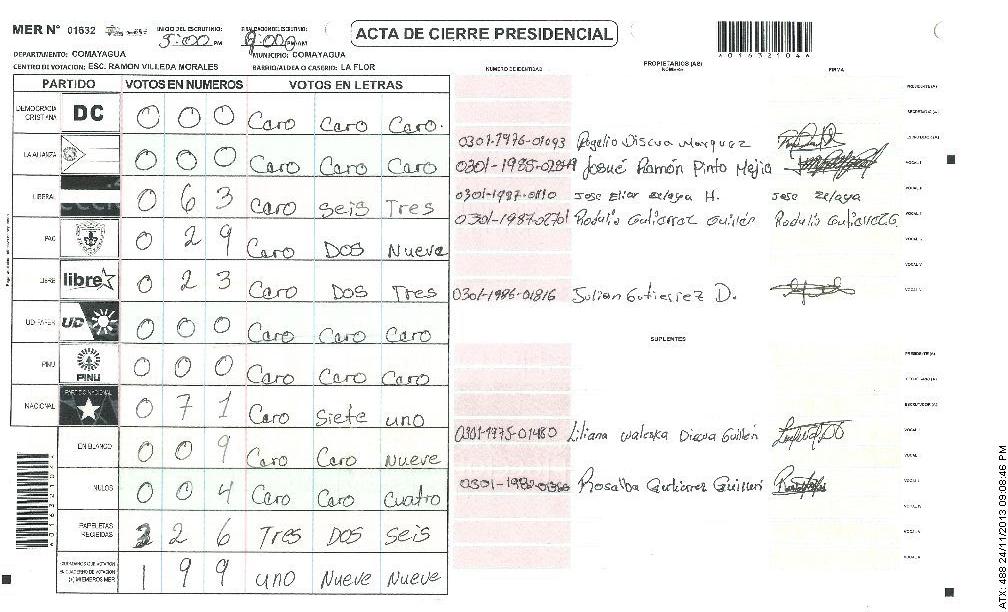 MER Nº 01632 INICIO DEL ESCRUTINIO: 5:00 PM FINALIZACION DEL ESCRUTINIO: 9:00 PM/AM
ACTA DE CIERRE PRESIDENCIAL
*01632104*
DEPARTAMENTO: COMAYAGUA MUNICIPIO: COMAYAGUA
CENTRO DE VOTACION: ESC. RAMON VILLEDA MORALES BARRIO/ALDEA O CASERIO: LA FLOR
PARTIDO VOTOS EN NUMEROS VOTOS EN LETRAS
DEMOCRACIA CRISTIANA DC 0 0 0 Caro Caro Caro.
LA ALIANZA 0 0 0 Caro Caro Caro
LIBERAL 0 6 3 Caro Seis Tres
PAC 0 2 9 Caro Dos Nueve
LIBRE libre 0 2 3 Caro Dos Tres
UD FAPER UD 0 0 0 Caro Caro Caro
PINU PINU 0 0 0 Caro Caro Caro
NACIONAL PARTIDO NACIONAL 0 7 1 Caro Siete uno
EN BLANCO 0 0 9 Caro Caro Nueve
NULOS 0 0 4 Caro Caro Cuatro
PAPELETAS RECIBIDAS 3 2 6 Tres Dos Seis
CIUDADANOS QUE VOTARON EN CUADERNO DE VOTACION (+) MIEMBROS MER 1 9 9 uno Nueve Nueve
NUMERO DE IDENTIDAD PROPIETARIOS (AS) NOMBRE FIRMA
PRESIDENTE (A)
SECRETARIO (A)
0301-1976-01093 Rogelio Discua Marquez ESCRUTADOR (A)
Josué Ramón Pinto Mejia VOCAL I
0301-1987-0110 Jose Elias Zelaya H. Jose Zelaya
0301-1987-02701 Rodulio Gutierrez Guillén Rodulio Gutierrez G.
0301-1986-01816 Julian Gutierrez D.
SUPLENTES
PRESIDENTE (A)
SECRETARIO (A)
ESCRUTADOR (A)
0301-1975-01480 Liliana Waleska Discua Guillén VOCAL
Rosalba Gutierrez
ATX: 488 24/11/2013 09:08:46 PM